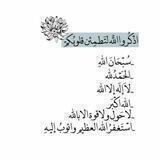 اذكروا الله لتطمئن قلوبكم
_سبحان الله
_الحمد لله
_لا إله إلا الله
_الله أكبر
_لا حول ولا قوة إلا بالله
_استغفر الله العظيم واتوب إليه